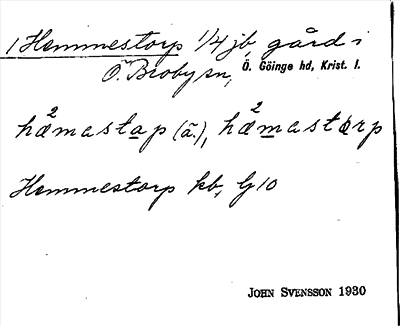 1 Hemmestorp 1/4 jb, gård i
Ö. Broby sn, Ö. Göinge hd, Krist. l.
hæ²mastap (ä.), hæ²mastɒrp
Hemmestorp kb, G10
JOHN SVENSSON 1930